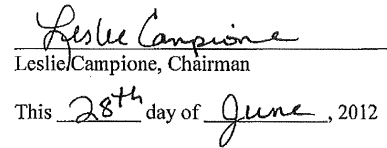 Leslie Campione
Leslie Campione, Chairman
This 28th day of June, 2012